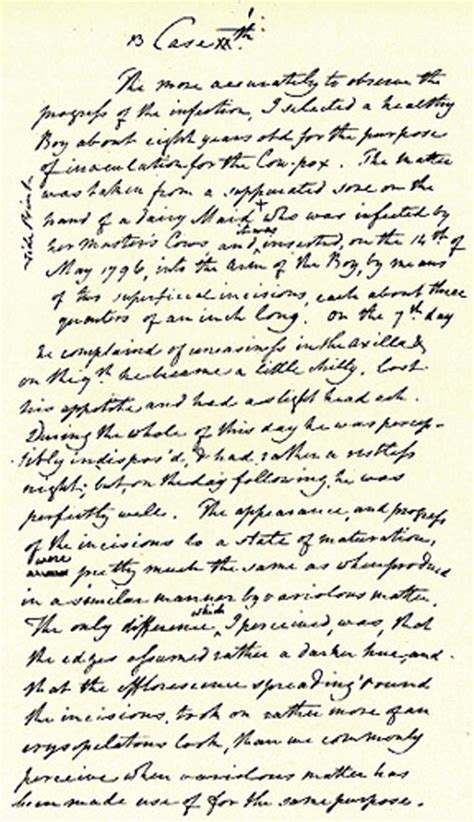 13 Case th
The more accurately to observe the
progress of the infection, I selected a healthy
Boy about eight years old for the purpose
of inoculation for the Cow-pox. The matter
was taken from a suppurated sore on the
hand of a dairy Maid + who was infected by
her Master's Cows and it was inserted, on the 14th of
May 1796, into the Arm of the Boy, by means
of two superficial incisions, each about three
quarters of an inch long. On the 7th day
he complained of uneasiness in the axilla &
on the 9th he became a little chilly, lost
his appetite and had a slight head ach.
During the whole of this day he was percep-
tibly indispos'd, & had rather a restless
night; but, on the day following, he was
perfectly well. The appearance, and progress
of the incisions to a state of maturation,
were pretty much the same as when produced
in a similar manner by variolous matter.
The only difference which I perceived, was, that
the edges assumed rather a darker hue, and
that the efflorescence spreading round
the incisions, took on rather more of an
erysipelatous look, than we commonly
perceive when variolous matter has
been made use of for the same purpose.